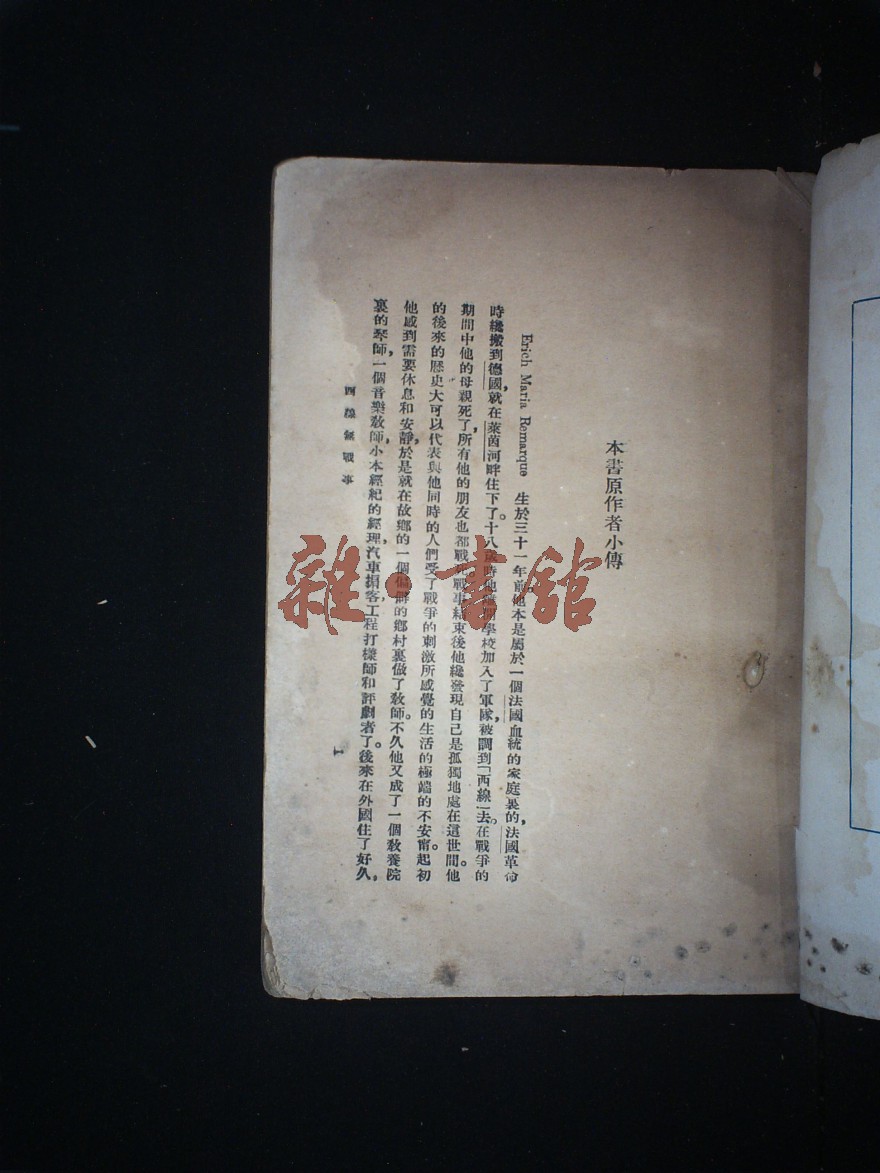 本書原作者小傳
Erich Maria Remarque 生於三十一年前。他本是屬於一個法國血統的家庭裏的，法國革命
時纔搬到德國，就在萊茵河畔住下了。十八歲時他學校加入了軍隊，被調到「西線」去。在戰爭的
期間中他的母親死了，所有他的朋友也都戰死。戰事結束後他纔發現自己是孤獨地處在這世間。他
的後來的歷史大可以代表與他同時的人們受了戰爭的刺激所感覺的生活的極端的不安甯。起初
他感到需要休息和安靜，於是就在故鄉的一個偏僻的鄉村裏做了教師。不久他又成了一個教養院
裏的琴師，一個音樂教師，小本經紀的經理，汽車掮客，工程打樣師和評劇者了。後來在外國住了好久，
西線無戰事
1
雜·書館